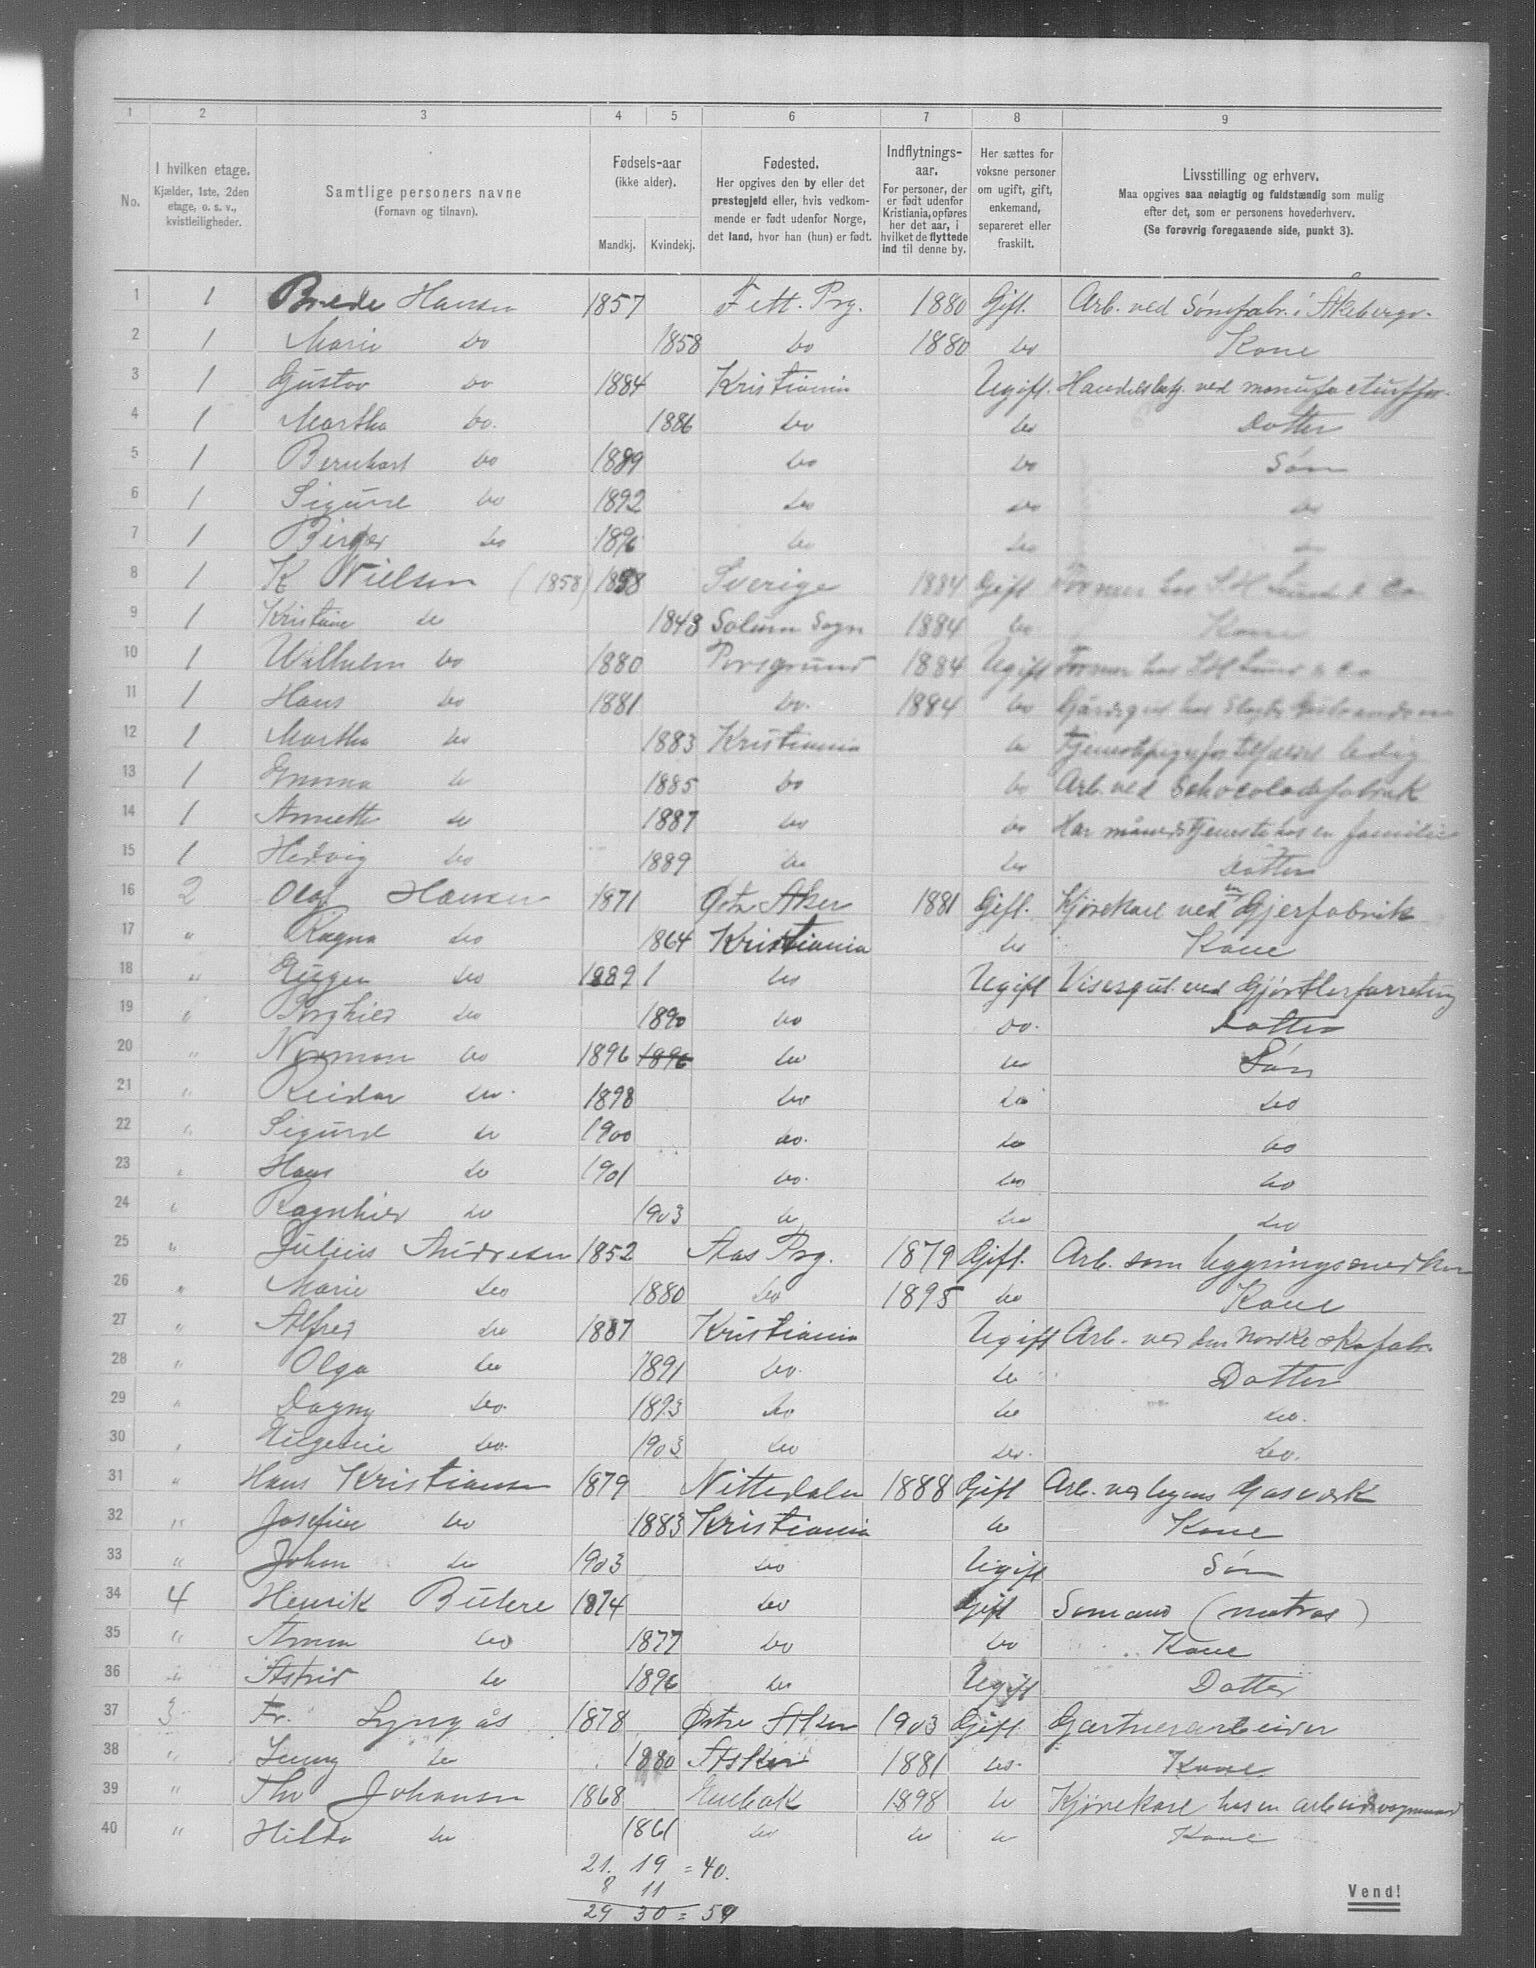 1 2 3 4 5 6 7 8 9
No.
I hvilken etage.
Kjælder, 1ste, 2den
etage, o. s. v.,
kvistleiligheder.
Samtlige personers navne
(Fornavn og tilnavn).
Fødsels-aar
(ikke alder).
Mandkj. Kvindekj.
Fødested.
Her opgives den by eller det
prestegjeld eller, hvis vedkom-
mende er født udenfor Norge,
det land, hvor han (hun) er født.
Indflytnings-
aar.
For personer, der
er født udenfor
Kristiania, opføres
her det aar, i
hvilket de flyttede
ind til denne by.
Her sættes for
voksne personer
om ugift, gift,
enkemand,
separeret eller
fraskilt.
Livsstilling og erhverv.
Maa opgives saa nøiagtig og fuldstændig som mulig
efter det, som er personens hovederhverv.
(Se forøvrig foregaaende side, punkt 3).
1 1 Brede Hansen 1857 Fett. Prg. 1880 Gift. Arb. ved i Åkebergv.
2 1 Marie do 1858 do 1880 do Kone
3 1 Gustav do 1884 Kristiania Ugift. ved
4 1 Martha do. 1886 do do Dotter
5 1 Bernhart do 1889 do do Søn
6 1 Sigurd do 1892 do do do
7 1 Birger do 1896 do do do
8 1 K Nielsen (1858) 1858 Sverige 1884 Gift Former hos S. H Lund & Co
9 1 Kristine do 1848 Solum Sogn 1884 do Kone
10 1 Wilhelm do 1880 Porsgrund 1884 Ugift Former hos S H Lund & Co
11 1 Hans do 1881 do. 1884 do Gårdsgut hos
12 1 Martha do 1883 Kristiania do ledig
13 1 Emma do 1885 do do Arb. ved Schocoladefabrik
14 1 Annette do 1887 do do Har månedstjeneste hos en familie
15 1 Hedvig do 1889 do do Dotter
16 2 Olaf Hansen 1871 Aker 1881 Gift. Kjørekarl ved en Gjerfabrik
17 " Ragna do 1864 Kristiania do Kone
18 " Eugen do 1889 1 do Ugift Visergut ved Gjørtlerforretning
19 " Borghild do 1890 do do. Dotter
20 " Norman do 1896 1896 do do Søn
21 " Reidar do. 1898 do do do
22 " Sigurd do 1900 do. do do
23 " Hans do 1901 do. do do
24 " Ragnhild do 1903 do do do
25 " Julius Andresen 1852 Aas Prg. 1879 Gift. Arb. som bygningssnedker
26 " Marie do 1880 do 1895 do Kone
27 " Alfred do 1887 Kristiania Ugift Arb. ved den Norske skofabr.
28 " Olga do 1891 do. do Dotter
29 " Dagny do. 1893 do do do.
30 " Eugenie do. 1903 do do. do.
31 " Hans Kristiansen 1879 Nittedalen 1888 Gift Arb. ved byens Gasværk
32 " Josefine do 1883 Kristiania do Kone
33 " Johan do 1903 do Ugift Søn
34 4 Henrik Bülere 1874 do Gift Sømand (matros)
35 " Anna do 1877 do do Kone
36 " Astrid do 1896 do Ugift Dotter
37 3 Fr. Lyngås 1878 Østre Aker 1903 Gift Gartnerarbeider
38 " Jenny do 1880 Asker 1881 do. Kone
39 " Thv Johansen 1868 Enebak 1898 do Kjørekarl hos en arbeidsvognmand
40 " Hilda do 1861 do do do Kone
21. 19 = 40.
8 11
29 30 = 59
Vend!